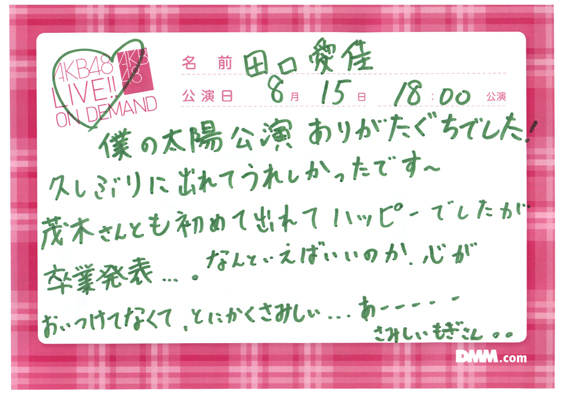 AKB48
LIVE!!
ON DEMAND
AKB
48
名前 田口愛佳
公演日 8月15日 18:00 公演
僕の太陽公演 ありがたぐちでした!
久しぶりに出れてうれしかったです〜
茂木さんとも初めて出れてハッピーでしたが
卒業発表...。なんといえばいいのか、心が
おいつけてなくて、とにかくさみしい... あーーーーー
さみしいもぎさん。。
DMM.com